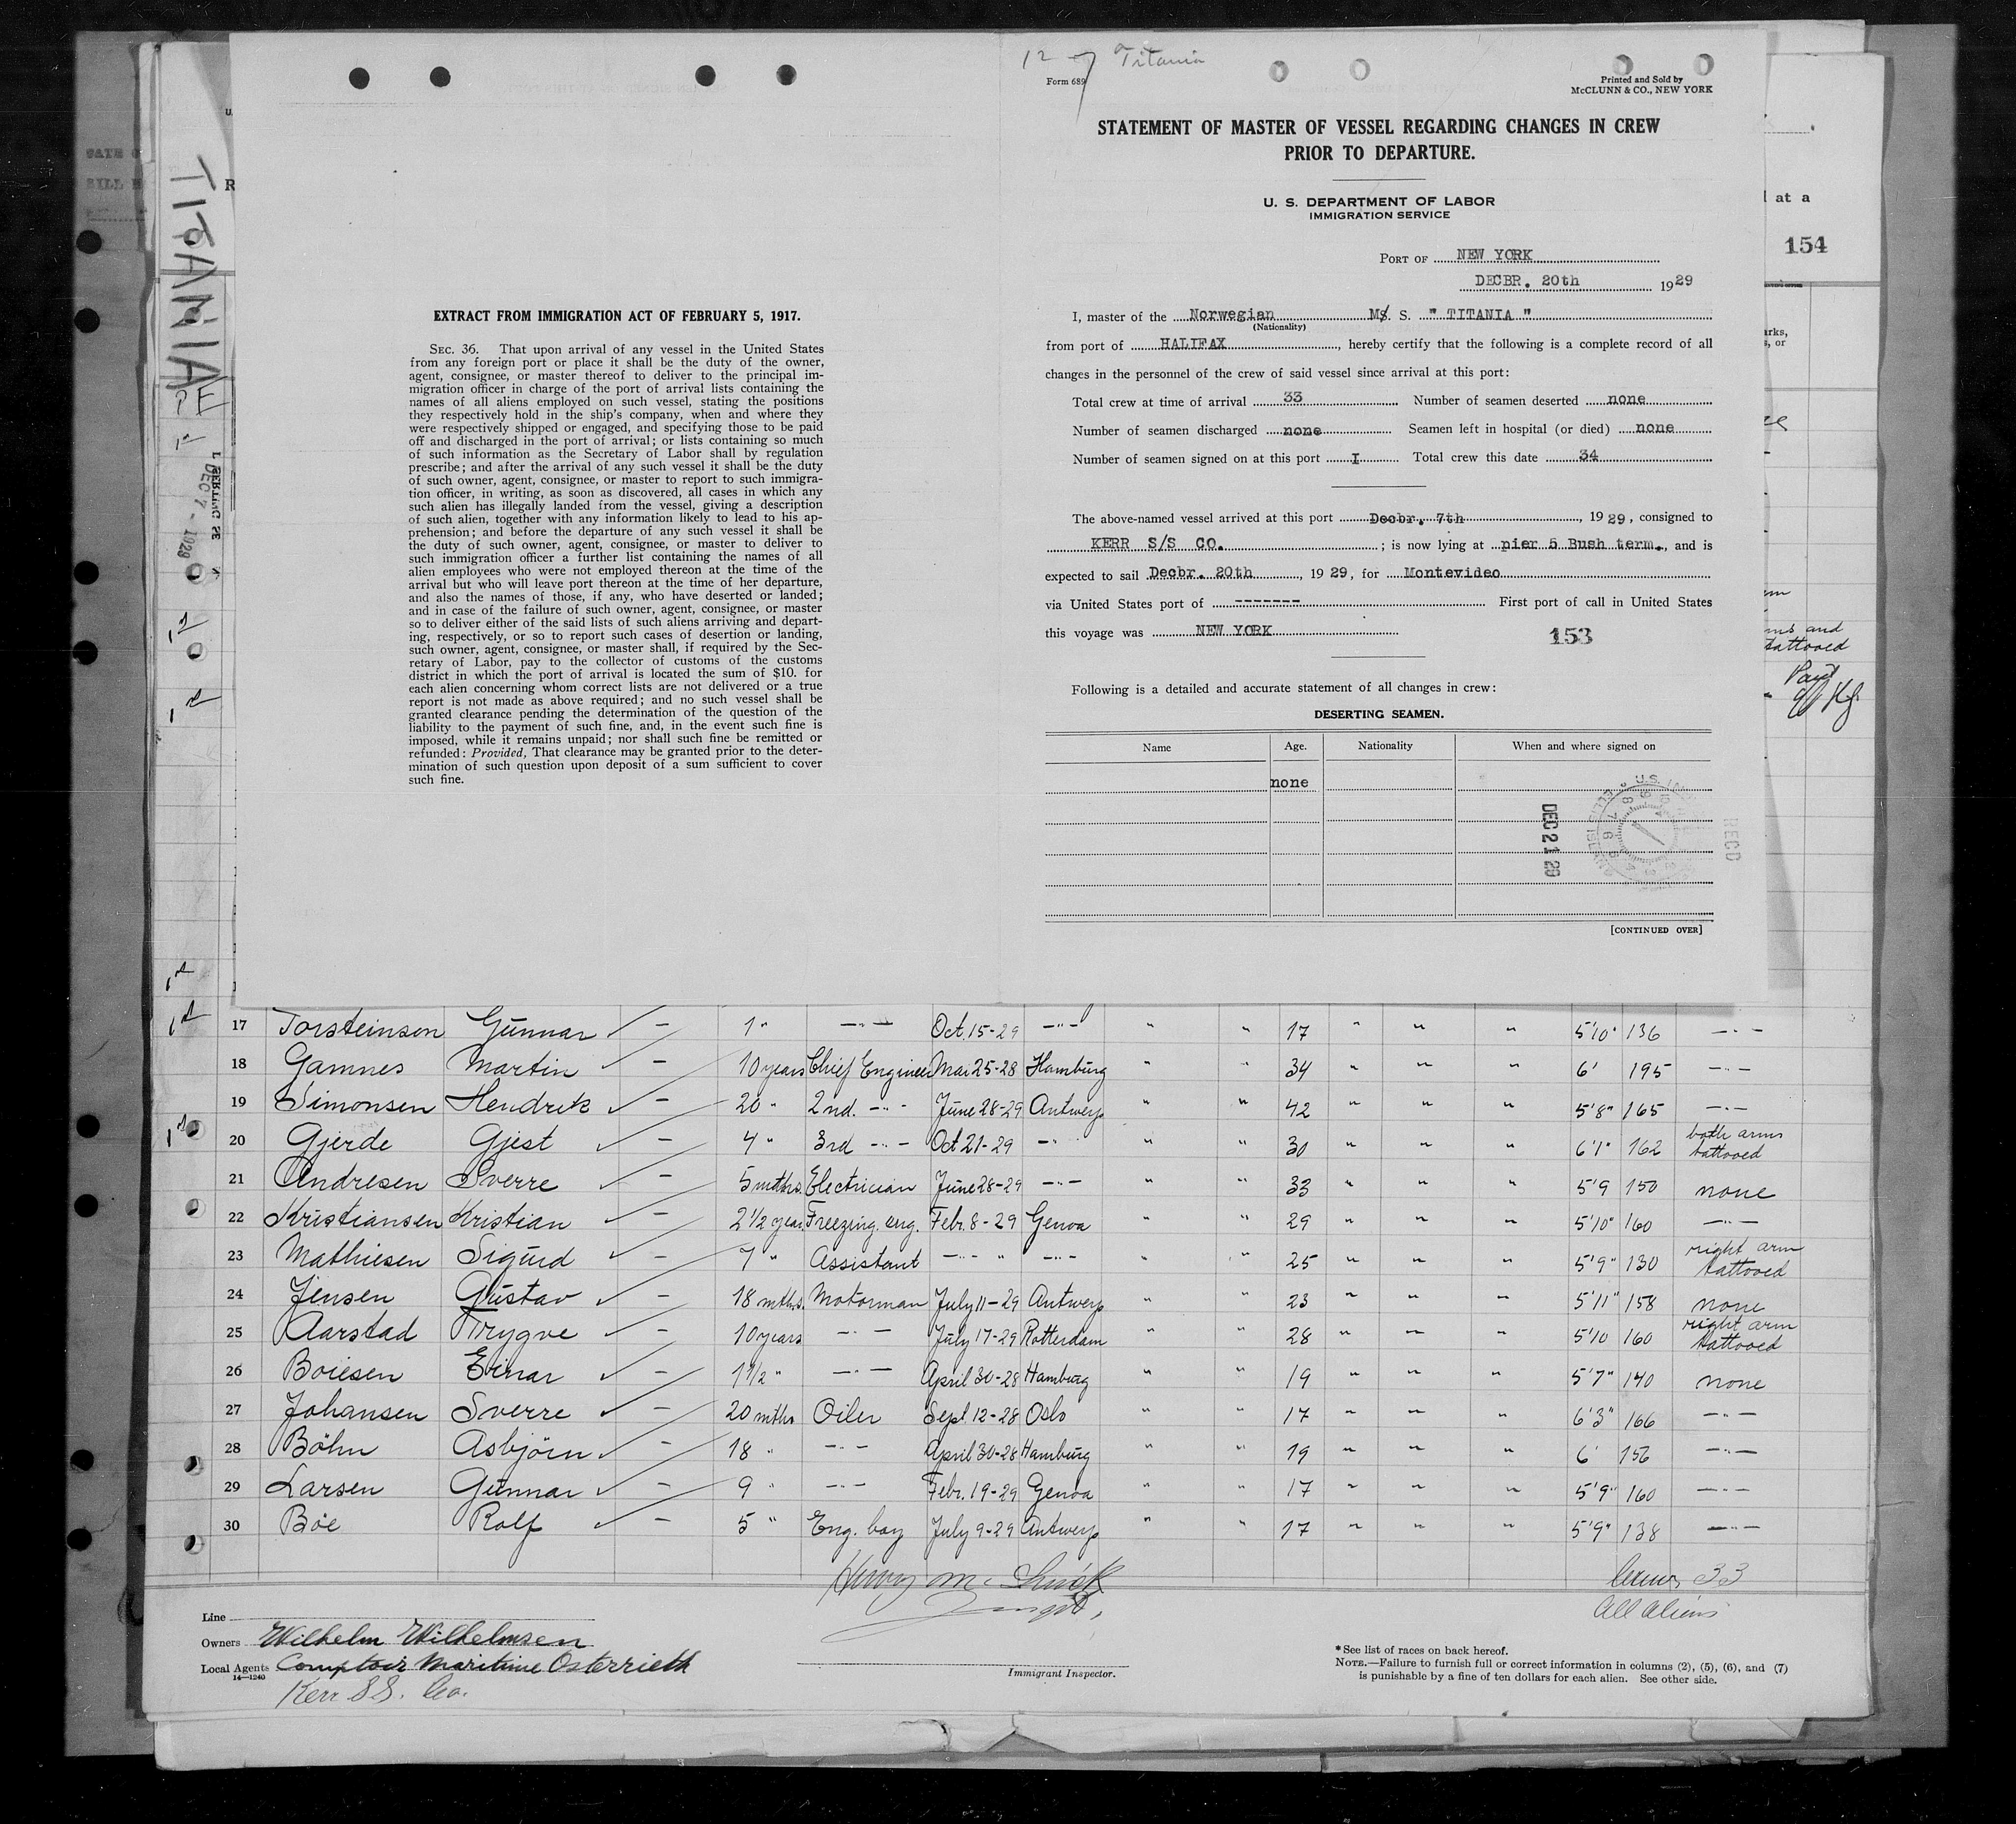 12-7 Titania
Form 689
Printed and Sold by
McCLUNN & CO., NEW YORK
STATEMENT OF MASTER OF VESSEL REGARDING CHANGES IN CREW
PRIOR TO DEPARTURE.
U. S. DEPARTMENT OF LABOR
IMMIGRATION SERVICE
PORT OF NEW YORK
DECBR. 20th 1929
I, master of the Norwegian M. S. " TITANIA "
(Nationality)
from port of HALIFAX, hereby certify that the following is a complete record of all
changes in the personnel of the crew of said vessel since arrival at this port:
Total crew at time of arrival 33 Number of seamen deserted none
Number of seamen discharged none Seamen left in hospital (or died) none
Number of seamen signed on at this port I Total crew this date 34
The above-named vessel arrived at this port Decbr. 7th, 1929, consigned to
KERR S/S CO. ; is now lying at pier 5 Bush term., and is
expected to sail Decbr. 20th, 1929, for Montevideo
via United States port of ------- First port of call in United States
this voyage was NEW YORK
153
Following is a detailed and accurate statement of all changes in crew:
DESERTING SEAMEN.
Name Age. Nationality When and where signed on
none
DEC 21 29
RECD
[CONTINUED OVER]
EXTRACT FROM IMMIGRATION ACT OF FEBRUARY 5, 1917.
SEC. 36. That upon arrival of any vessel in the United States
from any foreign port or place it shall be the duty of the owner,
agent, consignee, or master thereof to deliver to the principal im-
migration officer in charge of the port of arrival lists containing the
names of all aliens employed on such vessel, stating the positions
they respectively hold in the ship's company, when and where they
were respectively shipped or engaged, and specifying those to be paid
off and discharged in the port of arrival; or lists containing so much
of such information as the Secretary of Labor shall by regulation
prescribe; and after the arrival of any such vessel it shall be the duty
of such owner, agent, consignee, or master to report to such immigra-
tion officer, in writing, as soon as discovered, all cases in which any
such alien has illegally landed from the vessel, giving a description
of such alien, together with any information likely to lead to his ap-
prehension; and before the departure of any such vessel it shall be
the duty of such owner, agent, consignee, or master to deliver to
such immigration officer a further list containing the names of all
alien employees who were not employed thereon at the time of the
arrival but who will leave port thereon at the time of her departure,
and also the names of those, if any, who have deserted or landed;
and in case of the failure of such owner, agent, consignee, or master
so to deliver either of the said lists of such aliens arriving and depart-
ing, respectively, or so to report such cases of desertion or landing,
such owner, agent, consignee, or master shall, if required by the Sec-
retary of Labor, pay to the collector of customs of the customs
district in which the port of arrival is located the sum of $10. for
each alien concerning whom correct lists are not delivered or a true
report is not made as above required; and no such vessel shall be
granted clearance pending the determination of the question of the
liability to the payment of such fine, and, in the event such fine is
imposed, while it remains unpaid; nor shall such fine be remitted or
refunded: Provided, That clearance may be granted prior to the deter-
mination of such question upon deposit of a sum sufficient to cover
such fine.
TITANIA
DEC 7 - 1929
at a
154
arms and
tattooed
17 Torsteinson Gunnar — 1 " —"— Oct. 15-29 —"— " " 17 " " " 5'10" 136 —"—
18 Gamnes Martin — 10 years Chief Engineer Mar 25-28 Hamburg " " 34 " " " 6' 195 —"—
19 Simonsen Hendrik — 20 " 2nd. —"— June 28-29 Antwerp " " 42 " " " 5'8" 165 —"—
20 Gjerde Gjest — 4 " 3rd —"— Oct 21-29 —"— " " 30 " " " 6'1" 162 both arms tattooed
21 Andresen Sverre — 5 mths. Electrician June 28-29 —"— " " 33 " " " 5'9 150 none
22 Kristiansen Kristian — 2 1/2 year Freezing eng. Febr. 8-29 Genoa " " 29 " " " 5'10" 160 —"—
23 Mathiesen Sigurd — 7 " Assistant —"— " —"— " " 25 " " " 5'9" 130 right arm tattooed
24 Jensen Gustav — 18 mths. Motorman July 11-29 Antwerp " " 23 " " " 5'11" 158 none
25 Aarstad Trygve — 10 years —"— July 17-29 Rotterdam " " 28 " " " 5'10 160 right arm tattooed
26 Boiesen Einar — 1 1/2 " —"— April 30-28 Hamburg " " 19 " " " 5'7" 140 none
27 Johansen Sverre — 20 mths Oiler Sept. 12-28 Oslo " " 17 " " " 6'3" 166 —"—
28 Böhn Asbjörn — 18 " —"— April 30-28 Hamburg " " 19 " " " 6' 156 —"—
29 Larsen Gunnar — 9 " —"— Febr. 19-29 Genoa " " 17 " " " 5'9" 160 —"—
30 Böe Rolf — 5 " Eng. boy July 9-29 Antwerp " " 17 " " " 5'9" 138 —"—
33
All aliens
Line
Owners Wilhelm Wilhelmsen
Local Agents Comptoir Maritime Osterrieth
14—1240
Kerr SS. Co.
Immigrant Inspector.
*See list of races on back hereof.
NOTE.—Failure to furnish full or correct information in columns (2), (5), (6), and (7)
is punishable by a fine of ten dollars for each alien. See other side.